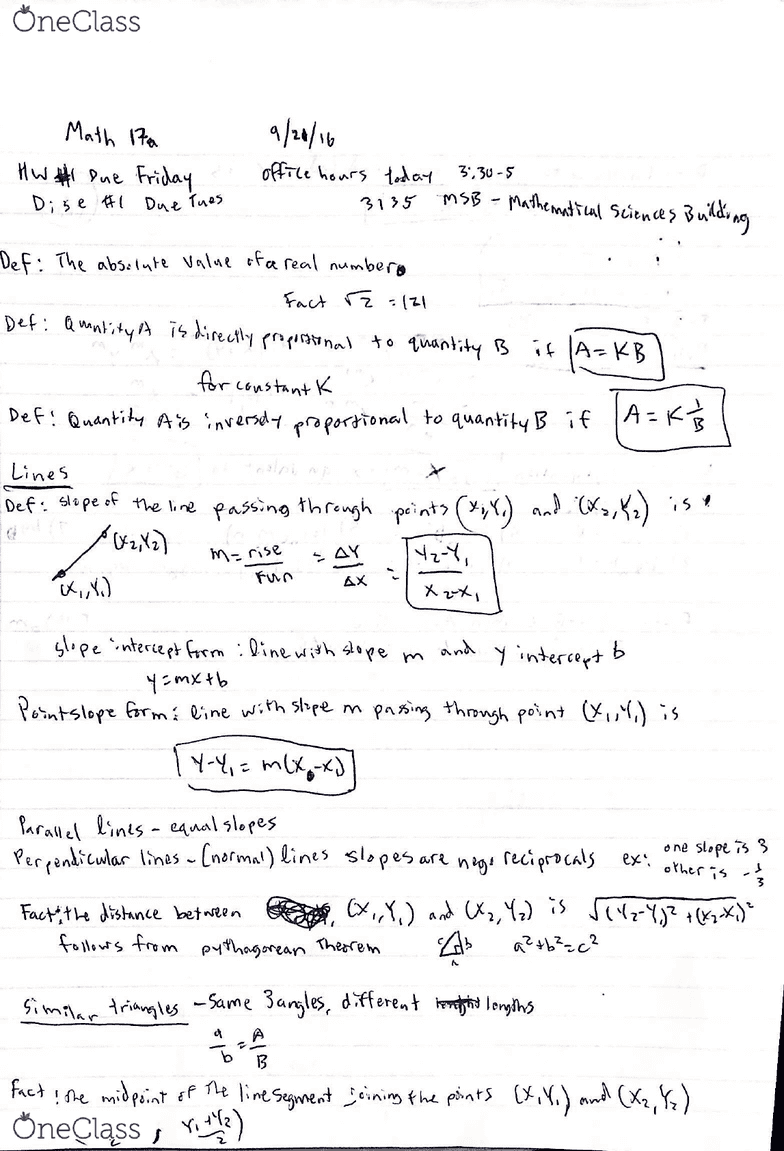 OneClass
Math 17a 9/21/16
HW #1 Due Friday office hours today 3:30-5
Disc #1 Due Tues 3135 MSB - Mathematical Sciences Building
Def: The absolute value of a real number
Fact √2 = |2|
Def: Quantity A is directly proportional to quantity B if A = KB
for constant K
Def: Quantity A is inversely proportional to quantity B if A = K 1/B
Lines
Def: slope of the line passing through points (X₁,Y₁) and (X₂,Y₂) is
(X₂,Y₂)
m = rise/run = ΔY/ΔX = Y₂-Y₁/X₂-X₁
(X₁,Y₁)
slope intercept form: line with slope m and y intercept b
y=mx+b
Point slope form: line with slope m passing through point (X₁,Y₁) is
Y-Y₁ = m(X-X₁)
Parallel lines - equal slopes
Perpendicular lines - (normal) lines slopes are neg. reciprocals ex: one slope is 3
other is -1/3
Fact: the distance between (X₁,Y₁) and (X₂,Y₂) is √(Y₂-Y₁)²+(X₂-X₁)²
follows from pythagorean Theorem c b a a²+b²=c²
Similar triangles - Same 3 angles, different lengths
a/b = A/B
Fact: the midpoint of the line segment joining the points (X₁Y₁) and (X₂,Y₂)
OneClass 2 , Y₁+Y₂/2)